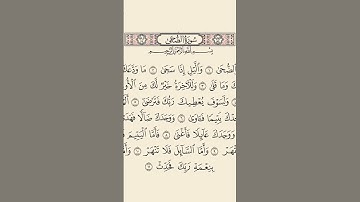 سُورَةُ الضُّحَىٰ
بِسْمِ اللَّهِ الرَّحْمَٰنِ الرَّحِيمِ
الضُّحَىٰ ١ وَاللَّيْلِ إِذَا سَجَىٰ ٢ مَا وَدَّعَكَ
وَمَا قَلَىٰ ٣ وَلَلْآخِرَةُ خَيْرٌ لَّكَ مِنَ الْأُو
وَلَسَوْفَ يُعْطِيكَ رَبُّكَ فَتَرْضَىٰ ٥
دْكَ يَتِيمًا فَـَٔاوَىٰ ٦ وَوَجَدَكَ ضَآلًّا فَهَدَ
وَوَجَدَكَ عَآئِلًا فَأَغْنَىٰ ٨ فَأَمَّا الْيَتِيمَ فَ
هَرْ ٩ وَأَمَّا السَّآئِلَ فَلَا تَنْهَرْ ١٠ وَأَمَّ
بِنِعْمَةِ رَبِّكَ فَحَدِّثْ ١١